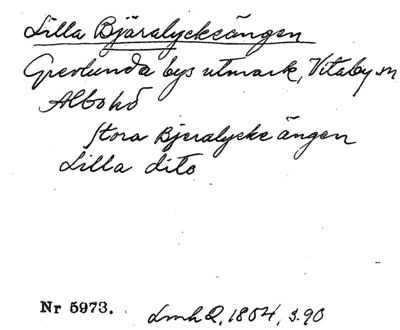 Lilla Bjäralyckeängen
Grevlunda bys utmark, Vitaby sn
Albo hd
Stora Bjeralycke ängen
Lilla dito
Nr 5973. LmhQ, 1804, s. 90